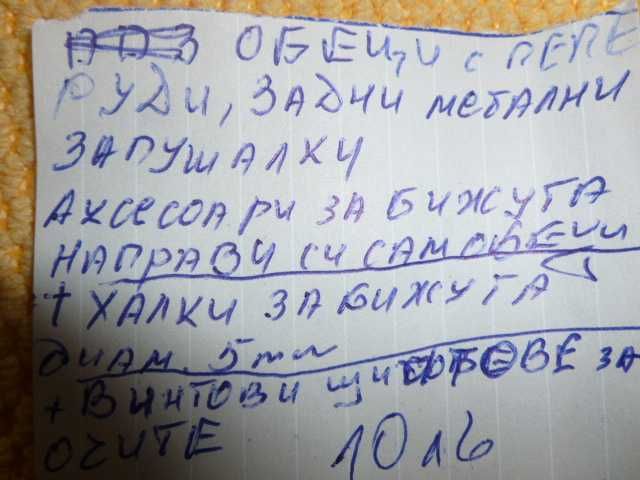 ОБЕЦИ С ПЕПЕ
РУДИ, ЗАДНИ МЕТАЛНИ
ЗАПУШАЛКИ
АКСЕСОАРИ ЗА БИЖУТА
НАПРАВИ СИ САМ ОБЕЦИ
+ ХАЛКИ ЗА БИЖУТА
ДИАМ. 5mm
+ ВИНТОВИ ЩИФТОВЕ ЗА
ОЧИТЕ 10 лв